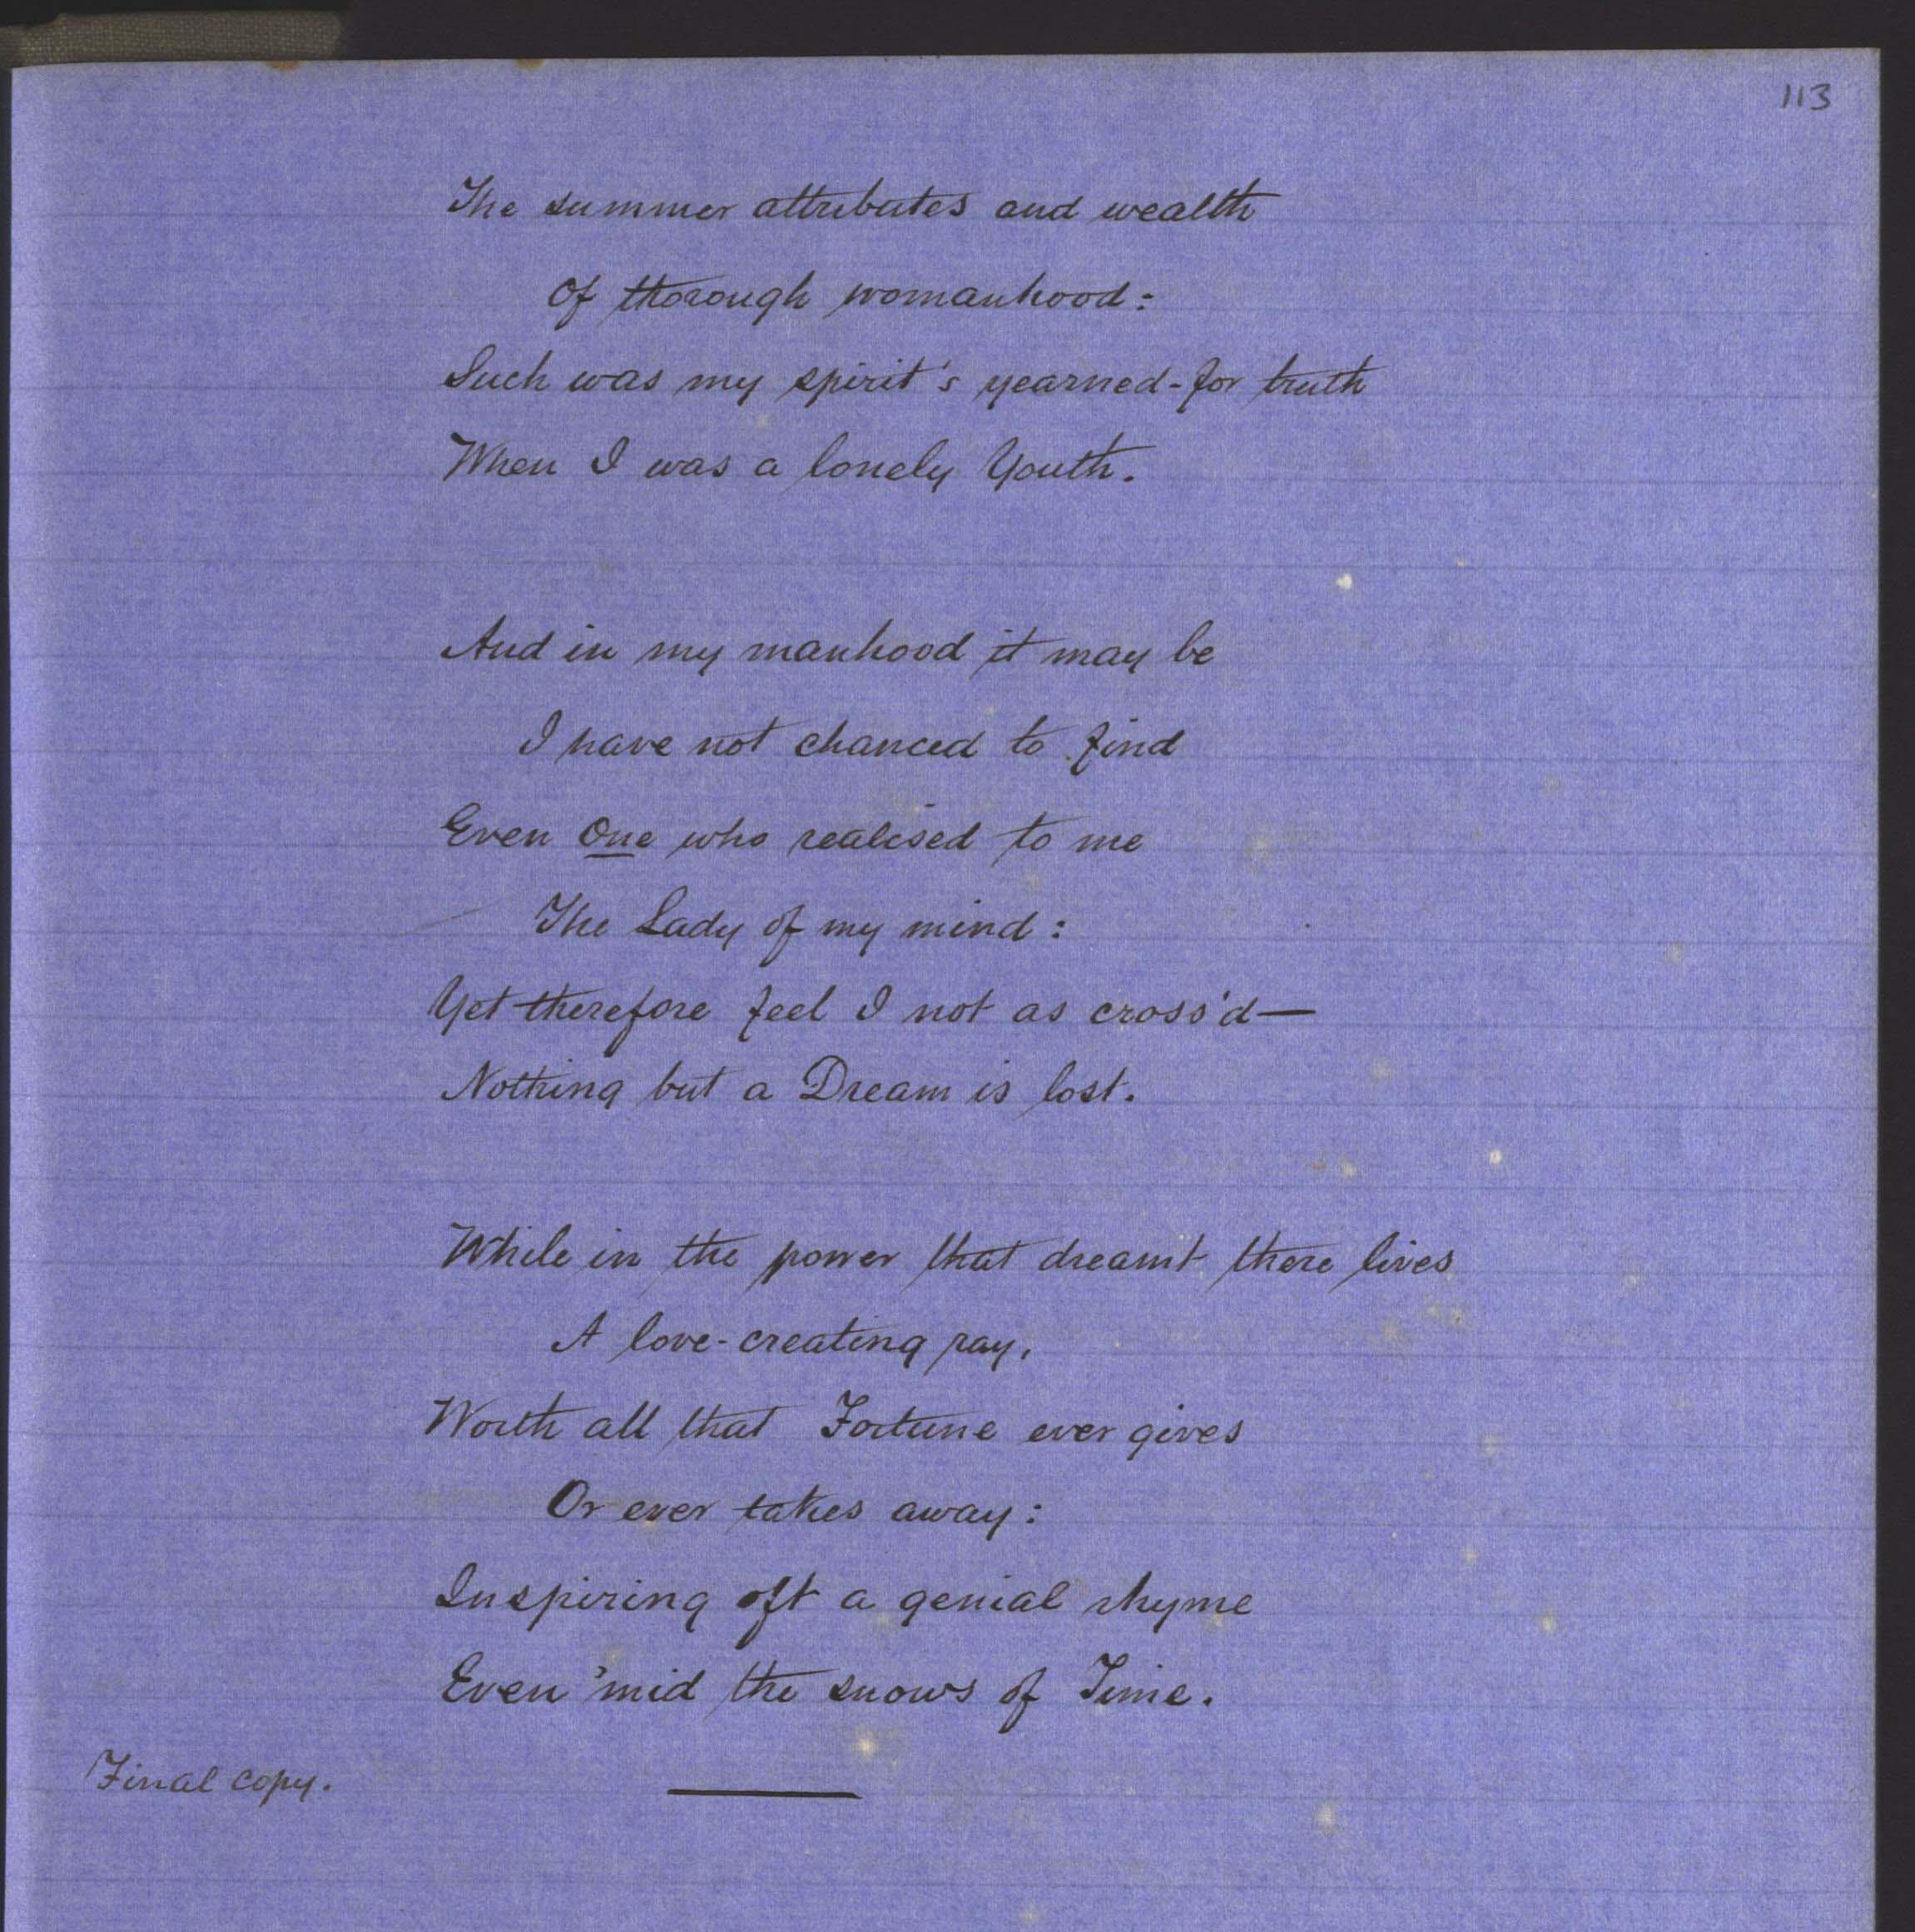 113
The summer attributes and wealth
Of thorough womanhood:
Such was my spirit's yearned-for truth
When I was a lonely Youth.
And in my manhood it may be
I have not chanced to find
Even One who realised to me
The Lady of my mind:
Yet therefore feel I not as cross'd—
Nothing but a Dream is lost.
While in the power that dreamt there lives
A love-creating ray,
Worth all that Fortune ever gives
Or ever takes away:
Inspiring oft a genial rhyme
Even 'mid the snows of Time.
Final copy.